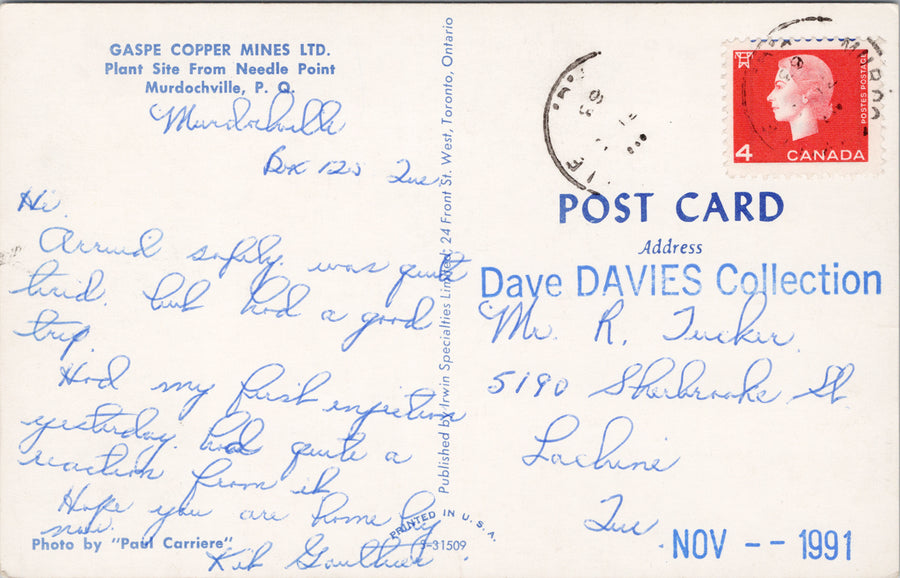 GASPE COPPER MINES LTD.
Plant Site From Needle Point
Murdochville, P. Q.
Murdochville
Box 120 Que
Hi.
Arrived safely. was quite
tired. but had a good
trip.
Had my first injection
yesterday. had quite a
reaction from it
Hope you are home by
now.
Photo by "Paul Carriere"
Gauthier
Published by Irwin Specialties Limited, 24 Front St. West, Toronto, Ontario
PRINTED IN U.S.A.
S-31509
4 CANADA
POSTES POSTAGE
POST CARD
Address
Dave DAVIES Collection
Mr. R. Tucker.
5190 Sherbrooke St
Lachine
Que
NOV -- 1991